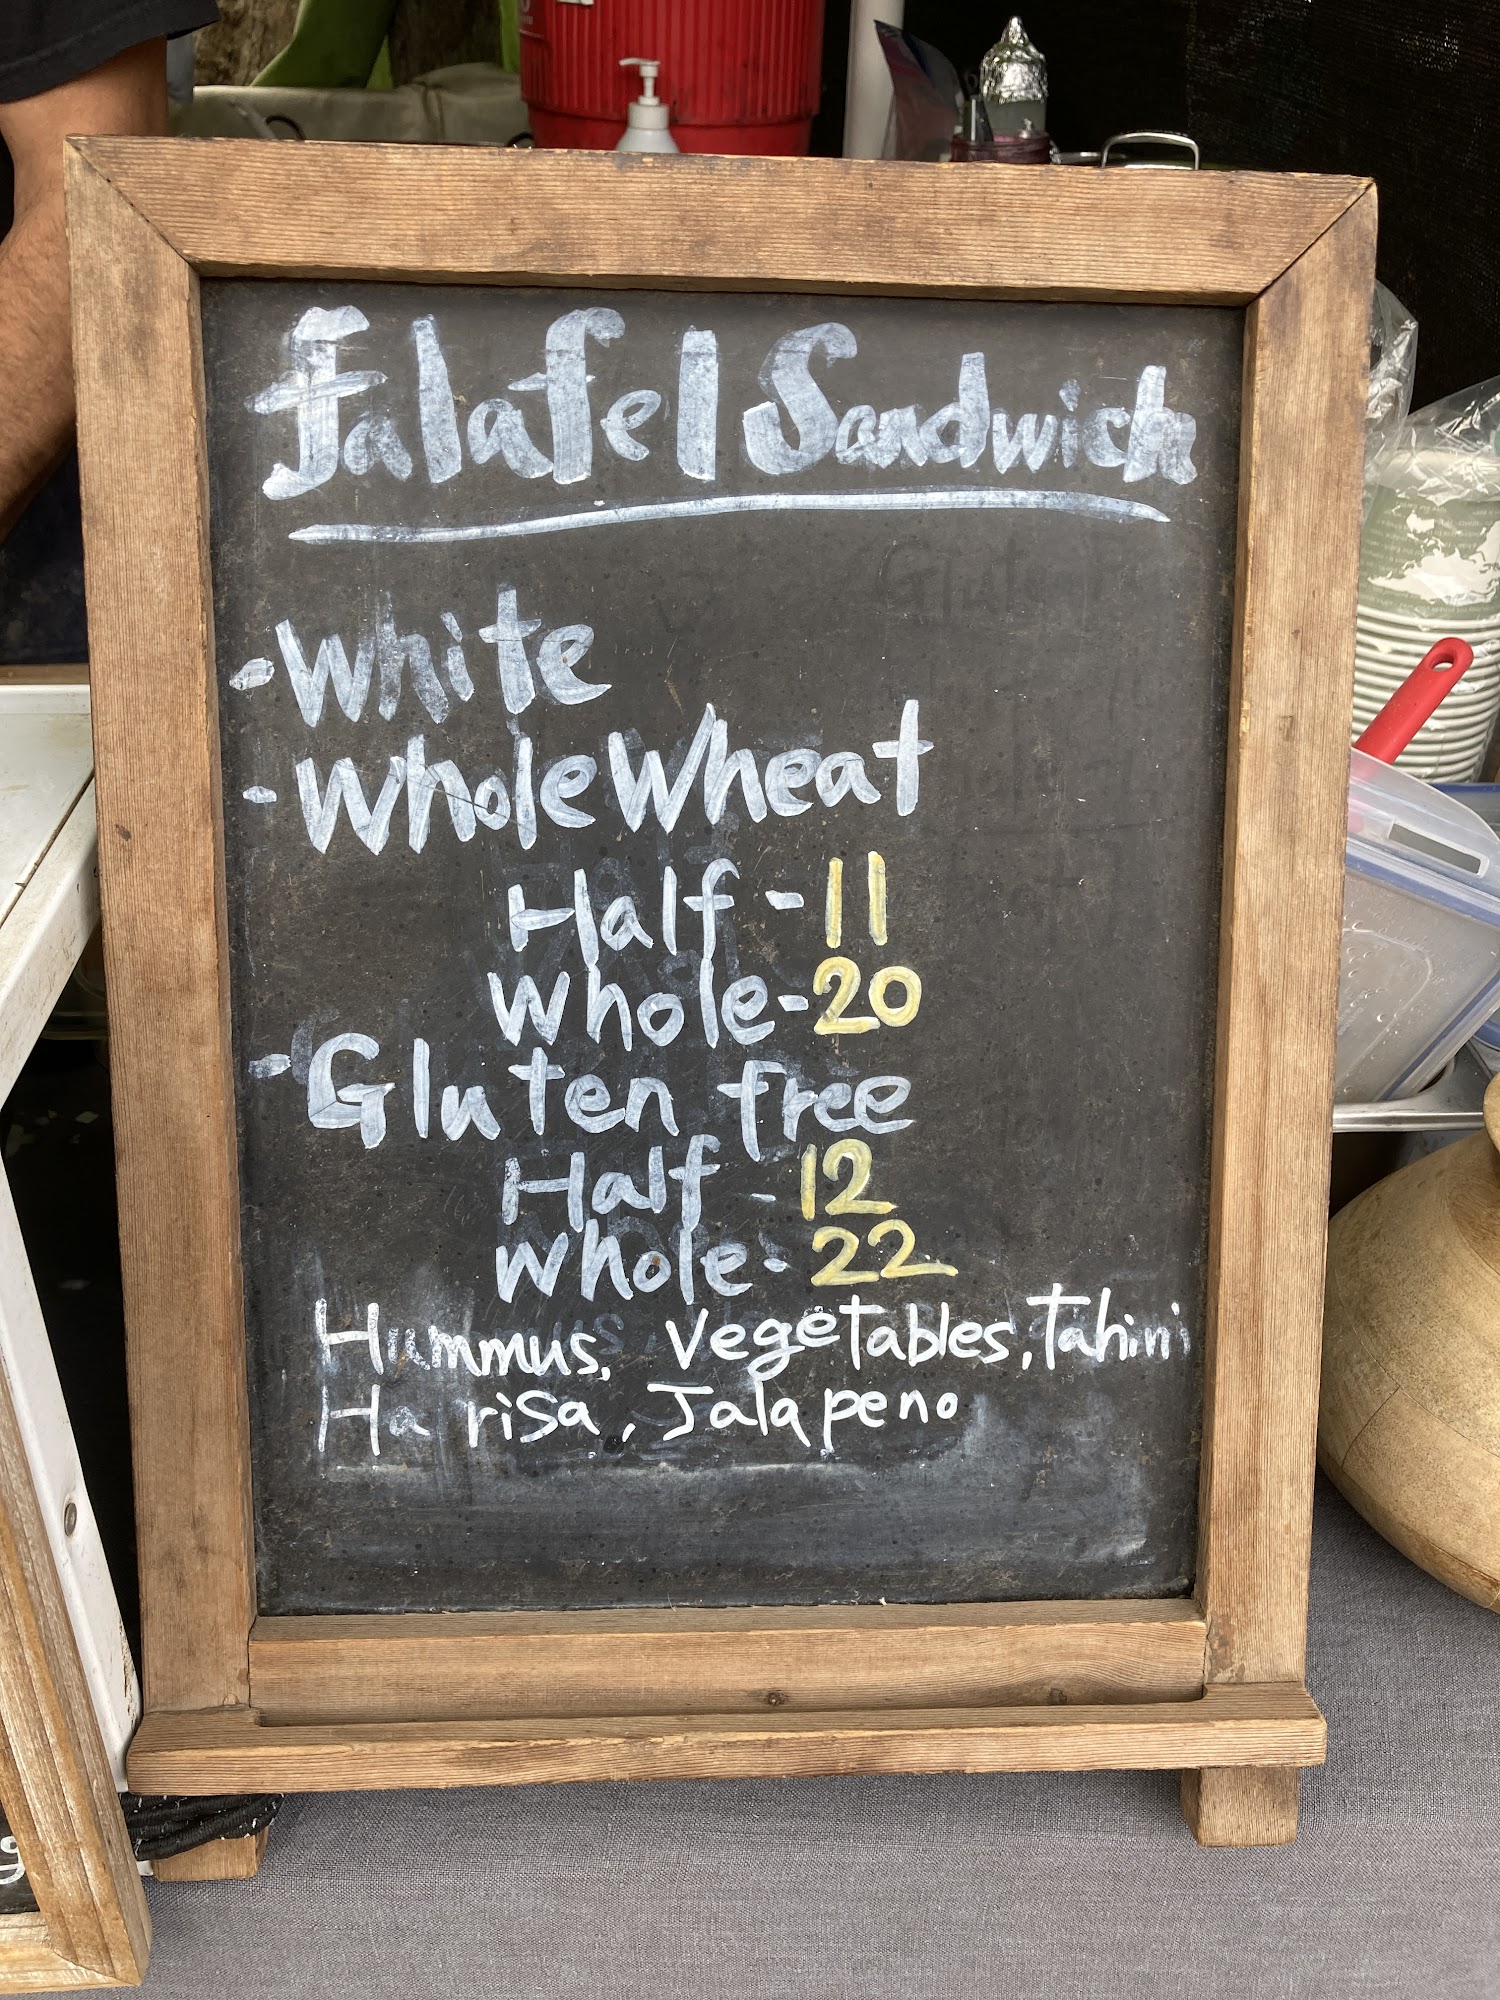 Falafel Sandwich
- White
- Whole Wheat
Half - 11
Whole - 20
- Gluten free
Half - 12
Whole - 22
Hummus, Vegetables, Tahini
Harisa, Jalapeno